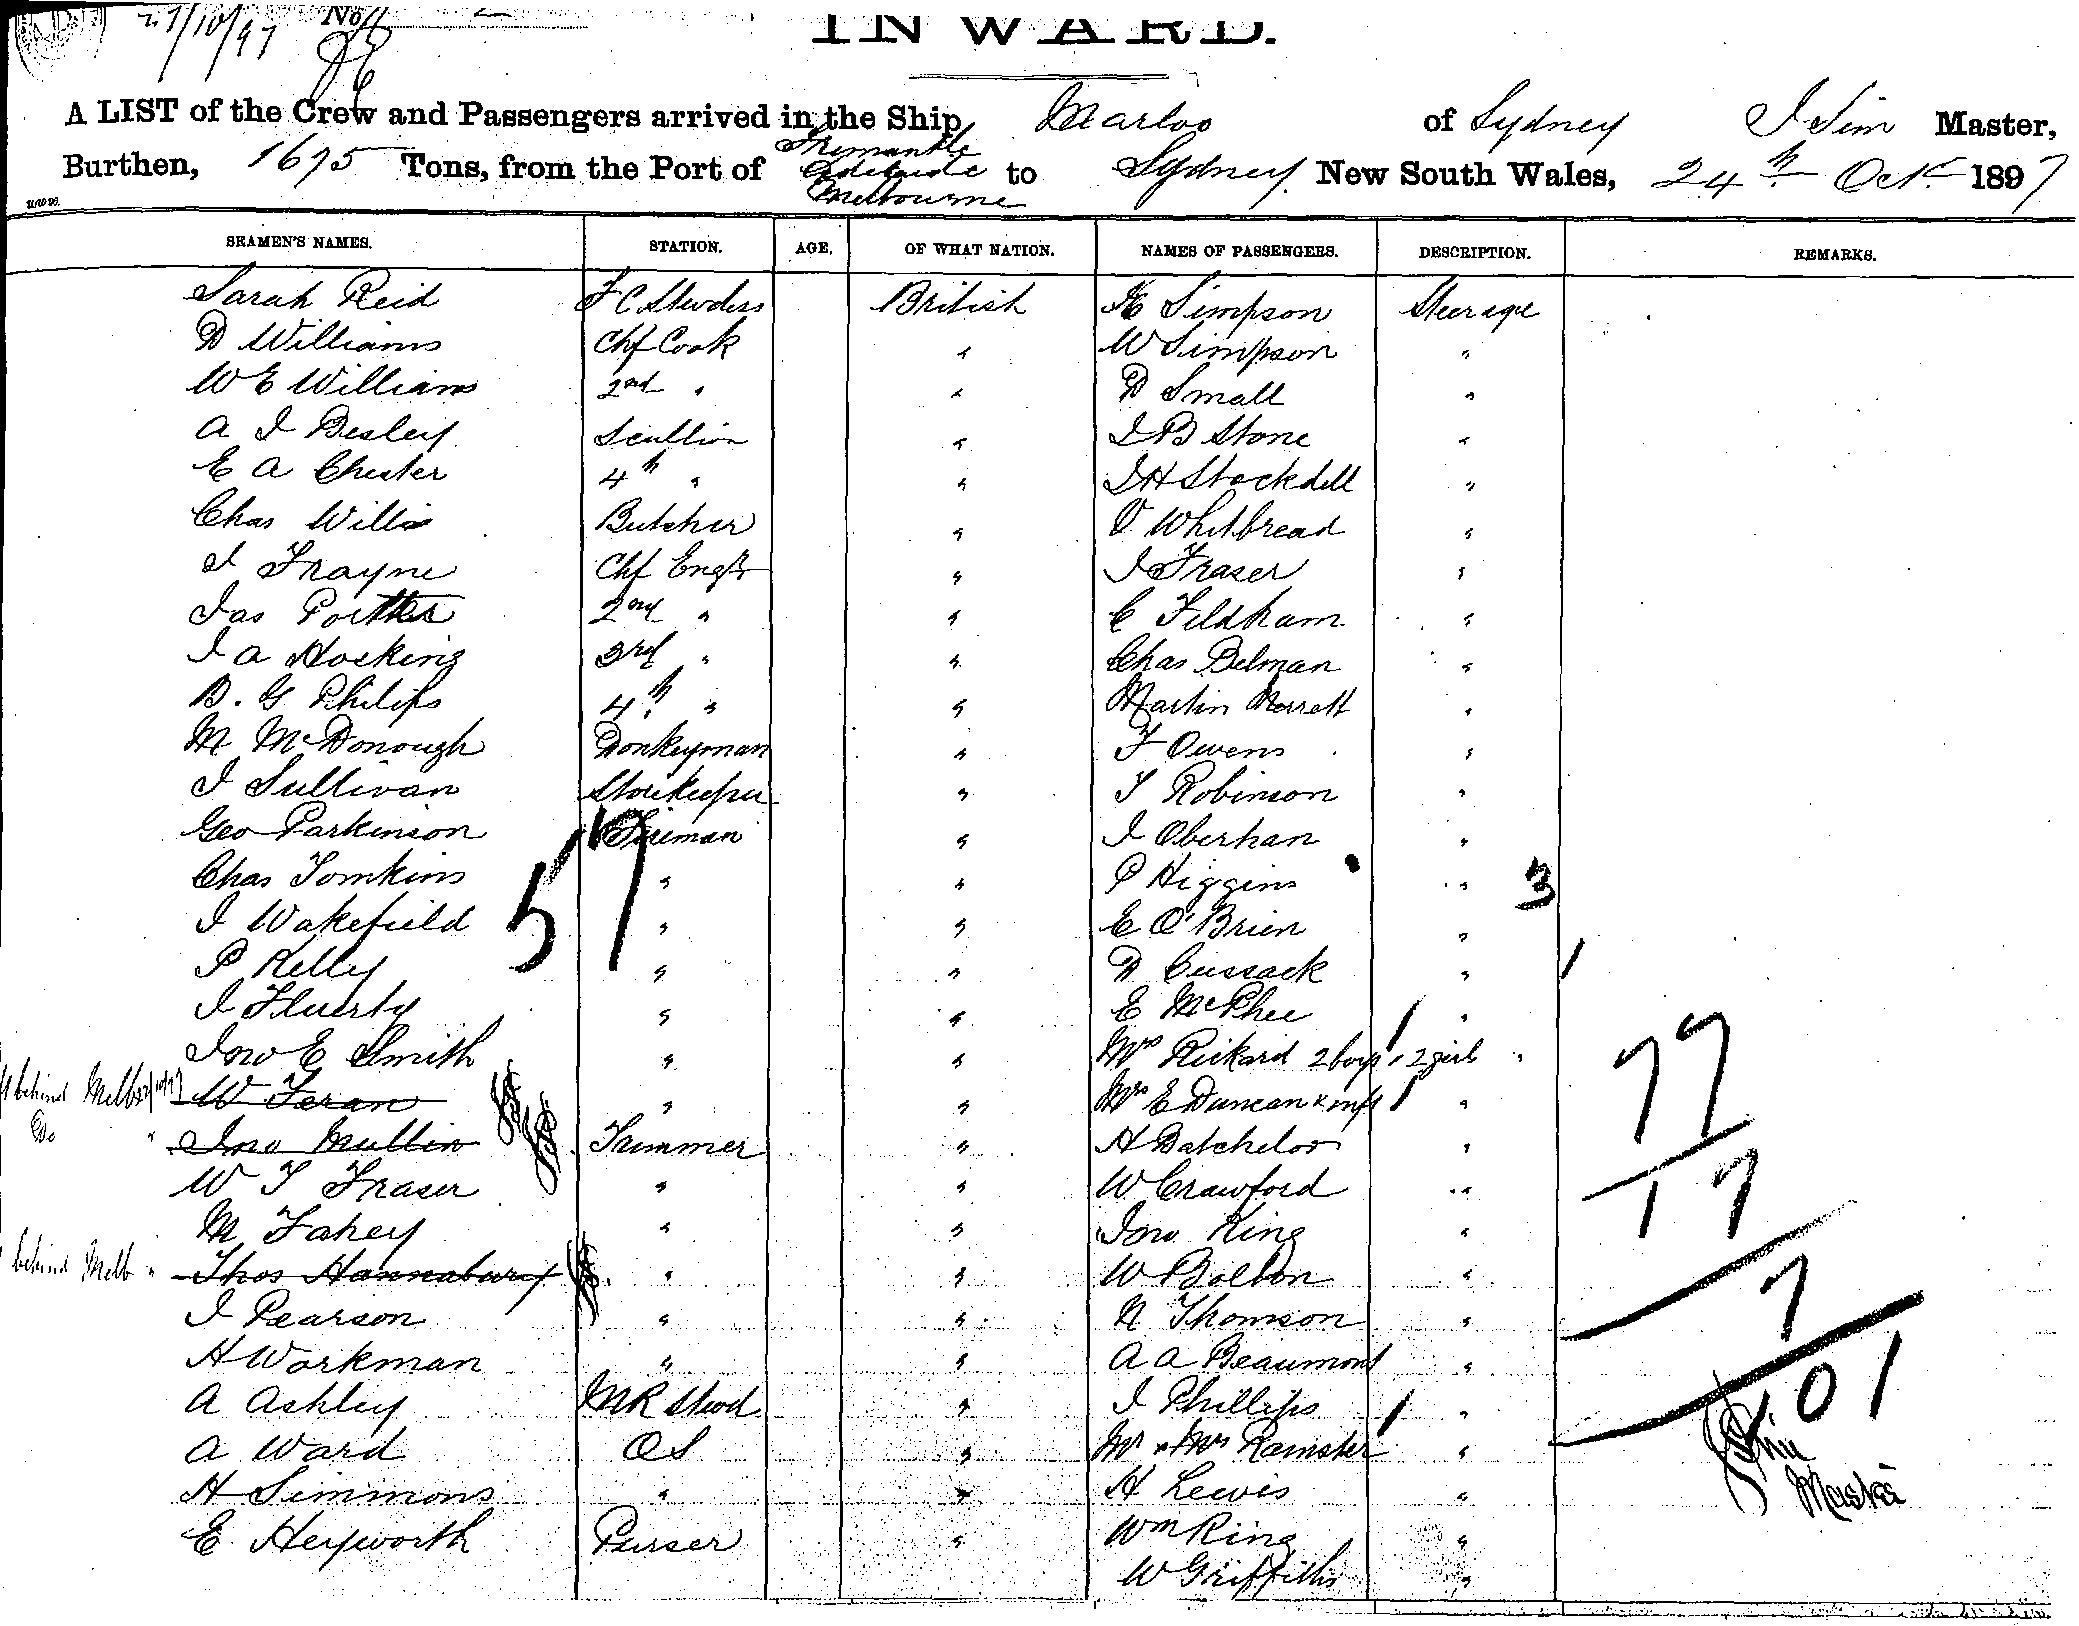 27/10/97 No
INWARD.
A LIST of the Crew and Passengers arrived in the Ship Marloo of Sydney J Sim Master,
Burthen, 1675 Tons, from the Port of Fremantle Adelaide Melbourne to Sydney, New South Wales, 24th Octr 1897
SEAMEN'S NAMES. STATION. AGE. OF WHAT NATION. NAMES OF PASSENGERS. DESCRIPTION. REMARKS.
Sarah Reid F C Stewdess British H Simpson Steerage
D Williams Chf Cook " W Simpson "
W E Williams 2nd " " D Small "
A J Besley Scullion " J B Stone "
E A Chester 4th " " J H Stockdell "
Chas Willis Butcher " V Whitbread "
J Frayne Chf Engr " J Fraser "
Jas Porter 2nd " " C Feldham "
J A Hocking 3rd " " Chas Belman "
B. G Philips 4th " " Martin Merrett "
M McDonough Donkeyman " F Owens "
J Sullivan Storekeeper " T Robinson "
Geo Parkinson Fireman " J Oberhan "
Chas Tomkins " " P Higgins " 3
J Wakefield 57 " " E O'Brien "
P Kelly " " D Cussack "
J Fluerty " " E McPhee "
Jno E Smith " " Mrs Rickard 2 boys, 2 girls " 77
behind Melb W Feran " " Mrs E Duncan & inft "
Do " Jno Mullin Trimmer " H Batchelor "
W T Fraser " " W Crawford " 17
M Fahey " " Jno King "
behind Melb " Thos Hannabury " " W Bolton "
J Pearson " " N Thomson " 7
H Workman " " A A Beaumont "
A Ashley M R Stewd " J Phillips " 101
A Ward O S " Mr & Mrs Ramster " J Sim
H Simmons " " H Lewis " Master
E Heyworth Purser " Wm King "
W Griffiths "